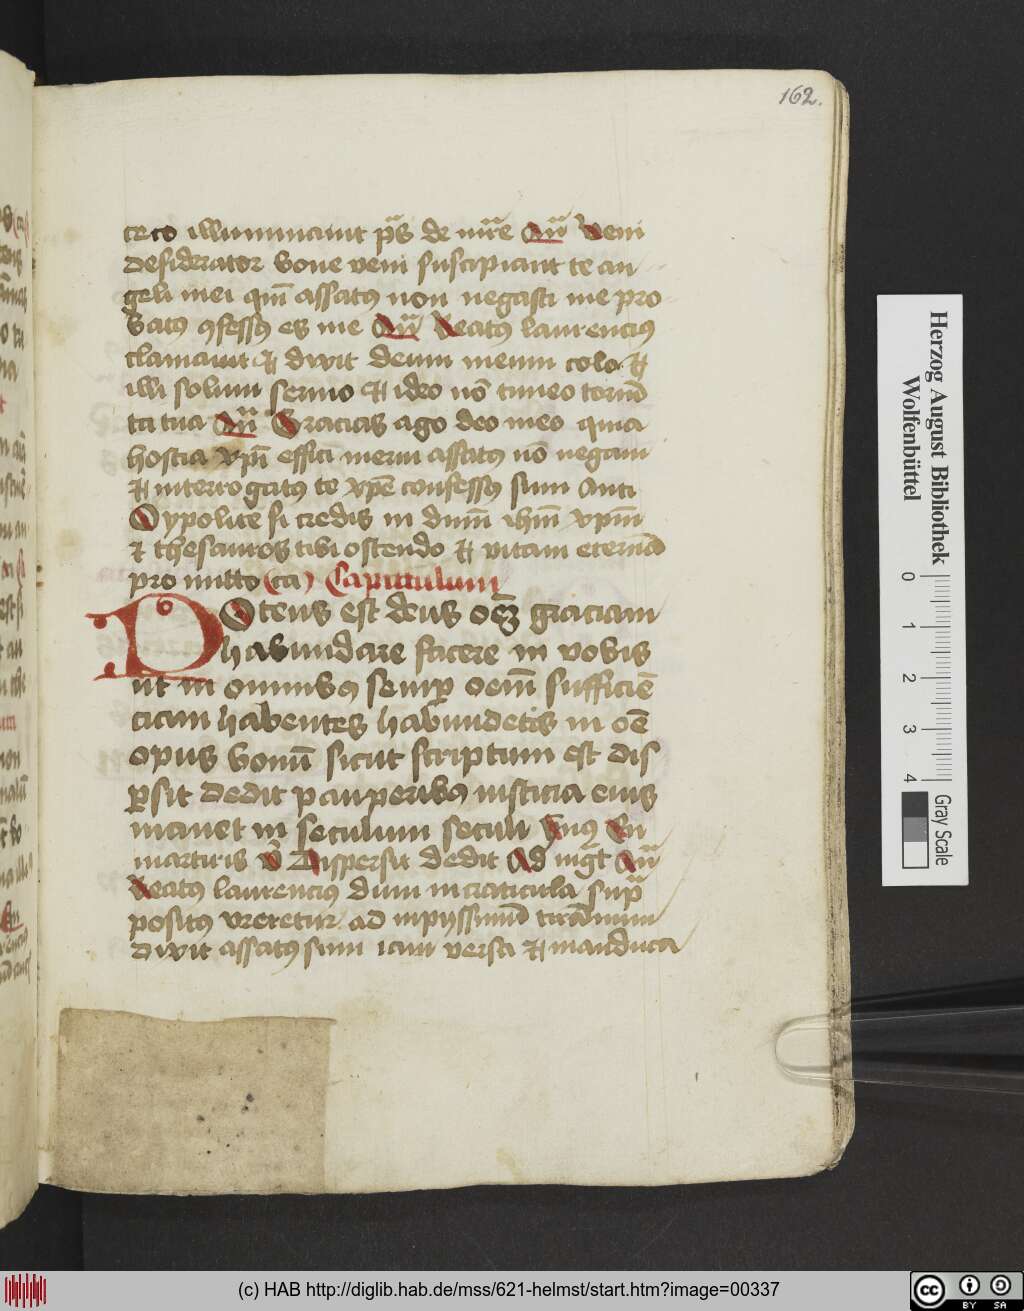 162.
ceco illuminauit p̄s de nr̄e An̄ Veni
desiderator bone veni suscipiant te an
geli mei qm̄ assatꝰ non negasti me pro
batꝰ ꝯfessꝰ es me An̄ Beatꝰ laurencius
clamauit ⁊ dixit deum meum colo ⁊
illi solum seruio ⁊ ideo nō timeo torm̄
ta tua An̄ Gracias ago deo meo quia
hostia xp̄i effici merui assatus nō negaui
⁊ interrogatꝰ te xp̄e confessꝰ sum Anti
Ypolite si credis in dnm̄ ihm̄ xpm̄
⁊ thesauros tibi ostendo ⁊ vitam eternā
pro mitto (ca) Capittulum
Potens est deus oēꝫ graciam
habundare facere in vobis
ut in omnibꝰ semꝑ oem̄ sufficiē
ciam habentes habundetis in oē
opus bonū sicut scriptum est dis
ꝑsit dedit pauperibꝰ iusticia eius
manet in seculum seculi
martiris V̄ Dispersit dedit Ad mgt̄ An̄
Beatꝰ laurencius dum in craticula sup̄
positꝰ vreretur ad inpyssimū tirānum
dixit assatꝰ sum iam versa ⁊ manduca
Herzog August Bibliothek
Wolfenbüttel
0 1 2 3 4
Gray Scale
(c) HAB http://diglib.hab.de/mss/621-helmst/start.htm?image=00337
cc BY SA